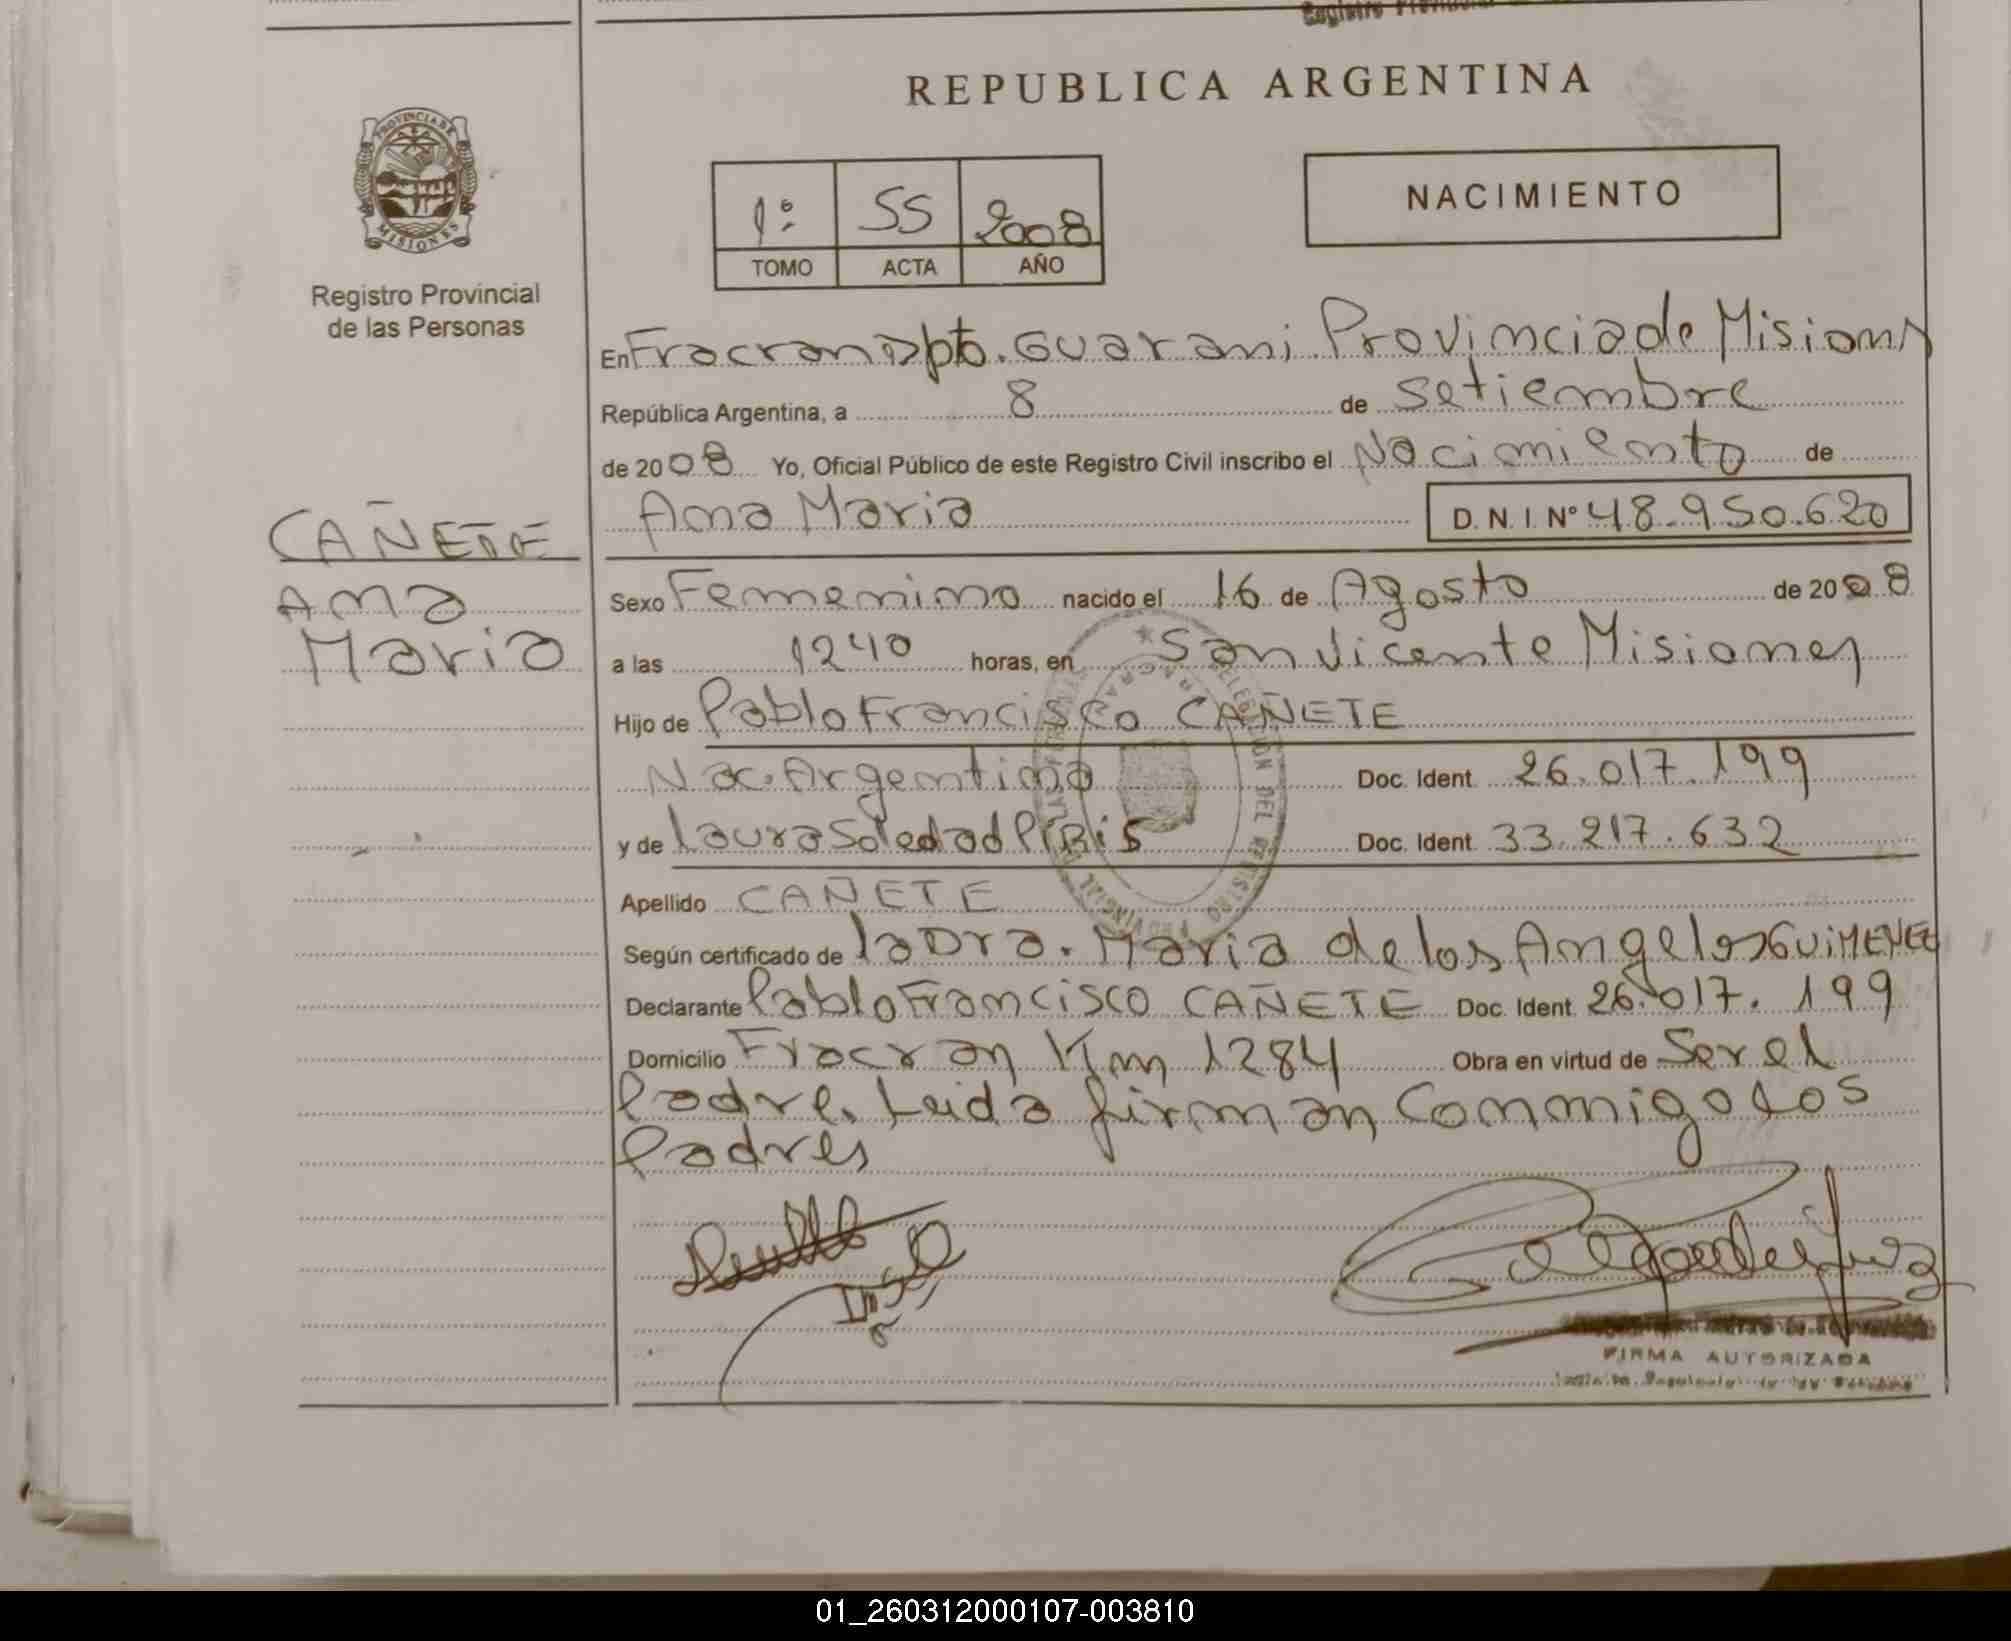 REPUBLICA ARGENTINA
PROVINCIA DE
MISIONES
Registro Provincial
de las Personas
1º 55 2008
TOMO ACTA AÑO
NACIMIENTO
En Fracran Dpto. Guarani Provincia de Misiones
República Argentina, a 8 de Setiembre
de 2008 Yo, Oficial Público de este Registro Civil inscribo el Nacimiento de
Ana Maria D.N.I. Nº 48.950.620
CAÑETE
Ana
Maria
Sexo Femenino nacido el 16 de Agosto de 2008
a las 1240 horas, en San Vicente Misiones
Hijo de Pablo Francisco CAÑETE
Nac. Argentina Doc. Ident. 26.017.199
y de Laura Soledad PIRIS Doc. Ident. 33.217.632
Apellido CAÑETE
Según certificado de la Dra. Maria de los Angeles GUIMENEZ
Declarante Pablo Francisco CAÑETE Doc. Ident. 26.017.199
Domicilio Fracran Km 1284 Obra en virtud de Ser el
Padre. Leida firman conmigo los
Padres
FIRMA AUTORIZADA
01_260312000107-003810